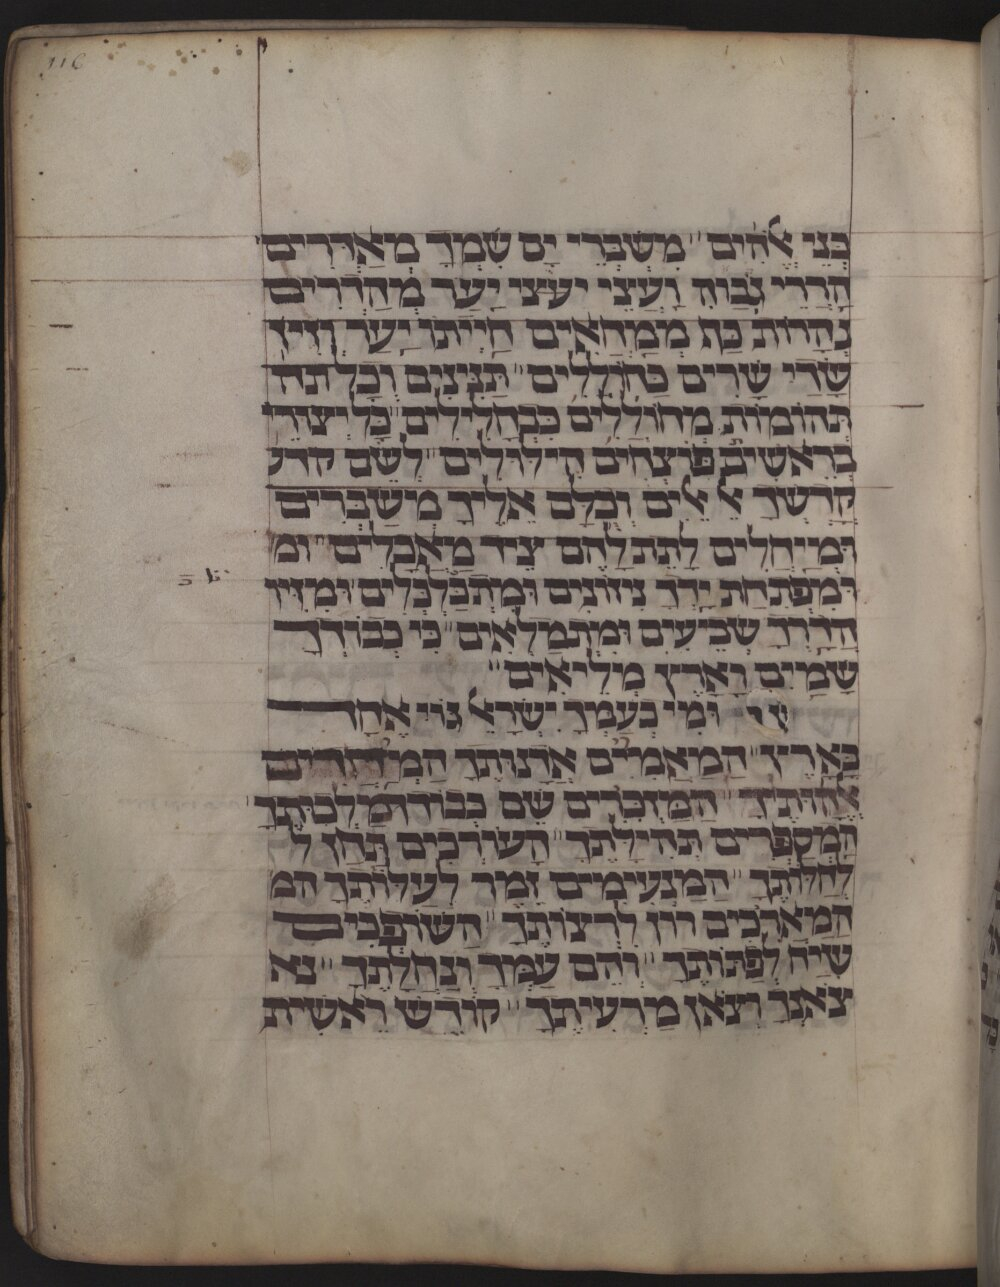 116
בְּנֵי אֱלֹהִים״ מִשְׁבְּרֵי יָם שִׁמְךָ מְאַדְּרִים
הַרְרֵי גְבוֹהַּ וַעֲצֵי יַעֲצֵי יַעַר מְהַדְּרִים
נְהָרוֹת כַּף מַמְחָאִים חַיְיתוֹ יַעַר וְזִיז
שָׂרֵי שָׁרִים כְּחוֹלְלִים״ תַּנִּינִים וְכָל תה
תְּהוֹמוֹת מְהוֹלְלִים כִּבְהִלּוּלִים״ כָּל יְצוּרֵי
בְרֵאשִׁית פּוֹצְחִים הִילּוּלִים״ לְשֵׁם קדש
קָדְשְׁךָ לא לים וְכֻלָּם אֵלֶיךָ מְשַׂבְּרִים
וּמְיַיחֲלִים לָתֵת לָהֶם צַיִד מַאֲכָלִים״ ומ
וּמִפְּתִחַת יָדְךָ נִיזּוֹנִים וּמִתְכַּלְכְּלִים״ וּמִזִּיו
הֲדָרְךָ שְׂבֵיעִים וּמִתְמַלְּאִים״ כִּי כְבוֹדְךָ
שָׁמַיִם וָאָרֶץ מְלֵיאִים״
יי וּמִי כְעַמְּךָ יִשְׂרָאֵל גּוֹי אֶחָד
בָּאָרֶץ״ הַמְאַמִּים אֱמוּנָתְךָ הַמְיַחֲדִים
אֲחוּתֶיךָ״ הַמַּזְכִּרִים שֵׁם כְּבוֹד מַלְכוּתֶךָ
הַמְסַפְּרִים תְּהִילָּתֶךָ״ הָעוֹרְכִים תַּחַן ל
לְחַלּוֹתֶךָ״ הַמַּנְעִימִים זֶמֶר לְעַלּוֹתֶךָ המ
הַמַּאֲרִיכִים רוֹן לְרַצּוֹתֶךָ״ הַשּׁוֹפְכִים
שִׂיחַ לְפַתּוֹתֶךָ״ וְהֵם עַמְּךָ וְנַחֲלָתֶךָ״ צא
צֹאנְךָ וְצֹאן מַרְעִיתֶךָ״ קוֹדֶשׁ רֵאשִׁית